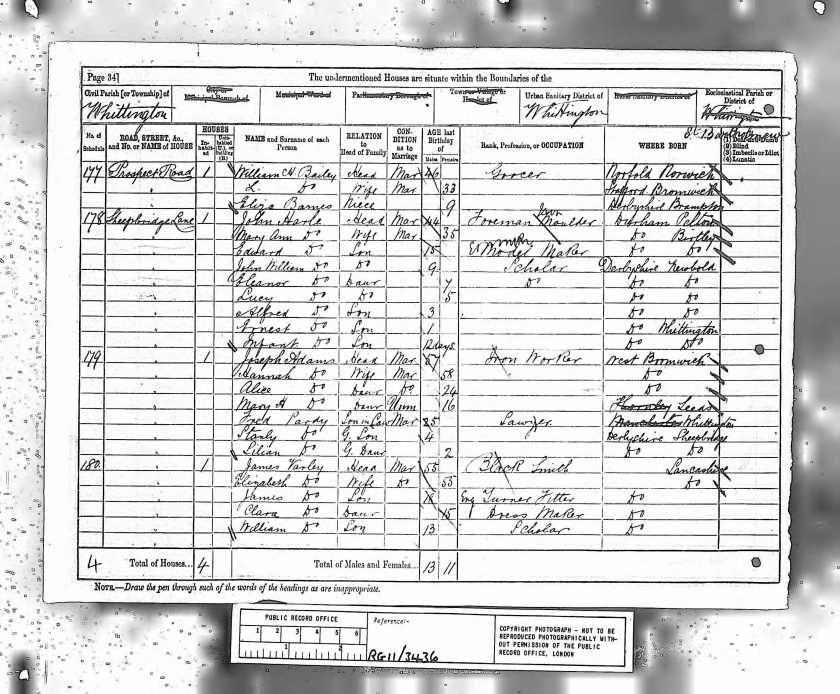 Page 34]
The undermentioned Houses are situate within the Boundaries of the
Civil Parish [or Township] of
City or Municipal Borough of
Municipal Ward of
Parliamentary Borough of
Town or Village or Hamlet of
Urban Sanitary District of
Rural Sanitary District of
Ecclesiastical Parish or District of
Whittington
Whittington
Whittington
St Bartholomew
No. of Schedule
ROAD, STREET, &c., and No. or NAME of HOUSE
HOUSES
Inhabited
Uninhabited (U.), or Building (B.)
NAME and Surname of each Person
RELATION to Head of Family
CONDITION as to Marriage
AGE last Birthday of
Males
Females
Rank, Profession, or OCCUPATION
WHERE BORN
(1) Deaf-and-Dumb
(2) Blind
(3) Imbecile or Idiot
(4) Lunatic
177 Prospect Road 1 William H. Bailey Head Mar 46 Grocer Norfold Norwich
L. Do Wife Mar 33 Stafford Bromwich
Eliza Barnes Niece 9 Derbyshire Brampton
178 Sheepbridge Lane 1 John Harle Head Mar 44 Foreman Iron Moulder Durham Pelton
Mary Ann Do Wife Mar 35 Do Birtley
Edward Do Son 15 Model Maker Do Do
John William Do Do 9 Scholar Derbyshire Newbold
Eleanor Do Daur 7 Do Do Do
Lucy Do Do 5 Do Do
Alfred Do Son 3 Do Do
Ernest Do Son 1 Do Whittington
Infant Do Son 12 days Do Do
179 1 Joseph Adams Head Mar 57 Iron Worker West Bromwich
Hannah Do Wife Mar 58 Do
Alice Do Daur Do 24 Do
Mary H Do Daur Unm 16 Leeds
Fred Pardy Son in Law Mar 25 Sawyer Manchester Whittington
Stanly Do G. Son 4 Derbyshire Sheepbridge
Lilian Do G. Daur 2 Do Do
180 1 James Varley Head Mar 55 Black Smith Lancashire
Elizabeth Do Wife Do 55 Do
James Do Son 18 Eng Turner Fitter Do
Clara Do Daur 15 Dress Maker Do
William Do Son 13 Scholar Do
4 Total of Houses... 4 Total of Males and Females... 13 11
NOTE.—Draw the pen through such of the words of the headings as are inappropriate.
PUBLIC RECORD OFFICE
1 2 3 4 5 6
1 2
Reference:-
RG 11/3436
COPYRIGHT PHOTOGRAPH - NOT TO BE REPRODUCED PHOTOGRAPHICALLY WITHOUT PERMISSION OF THE PUBLIC RECORD OFFICE, LONDON